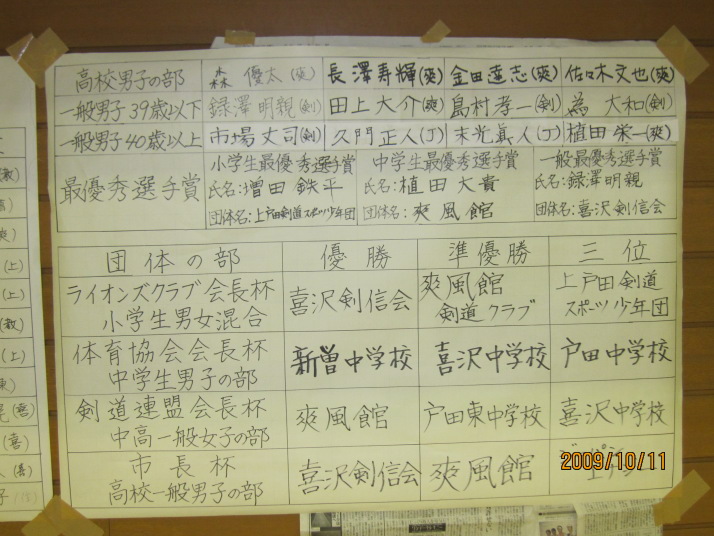 高校男子の部 森 優太(爽) 長澤寿輝(爽) 金田達志(爽) 佐々木文也(爽)
一般男子39歳以下 録澤明親(剣) 田上大介(爽) 島村孝一(剣) 為 大和(剣)
一般男子40歳以上 市場丈司(剣) 久門正人(J) 末光眞人(J) 植田栄一(爽)
最優秀選手賞 小学生最優秀選手賞 中学生最優秀選手賞 一般最優秀選手賞
氏名:増田鉄平 氏名:植田大貴 氏名:録澤明親
団体名:上戸田剣道スポーツ少年団 団体名:爽風館 団体名:喜沢剣信会
団体の部 優勝 準優勝 三位
ライオンズクラブ会長杯 小学生男女混合 喜沢剣信会 爽風館剣道クラブ 上戸田剣道スポーツ少年団
体育協会会長杯 中学生男子の部 新曽中学校 喜沢中学校 戸田中学校
剣道連盟会長杯 中高一般女子の部 爽風館 戸田東中学校 喜沢中学校
市長杯 高校一般男子の部 喜沢剣信会 爽風館
2009/10/11